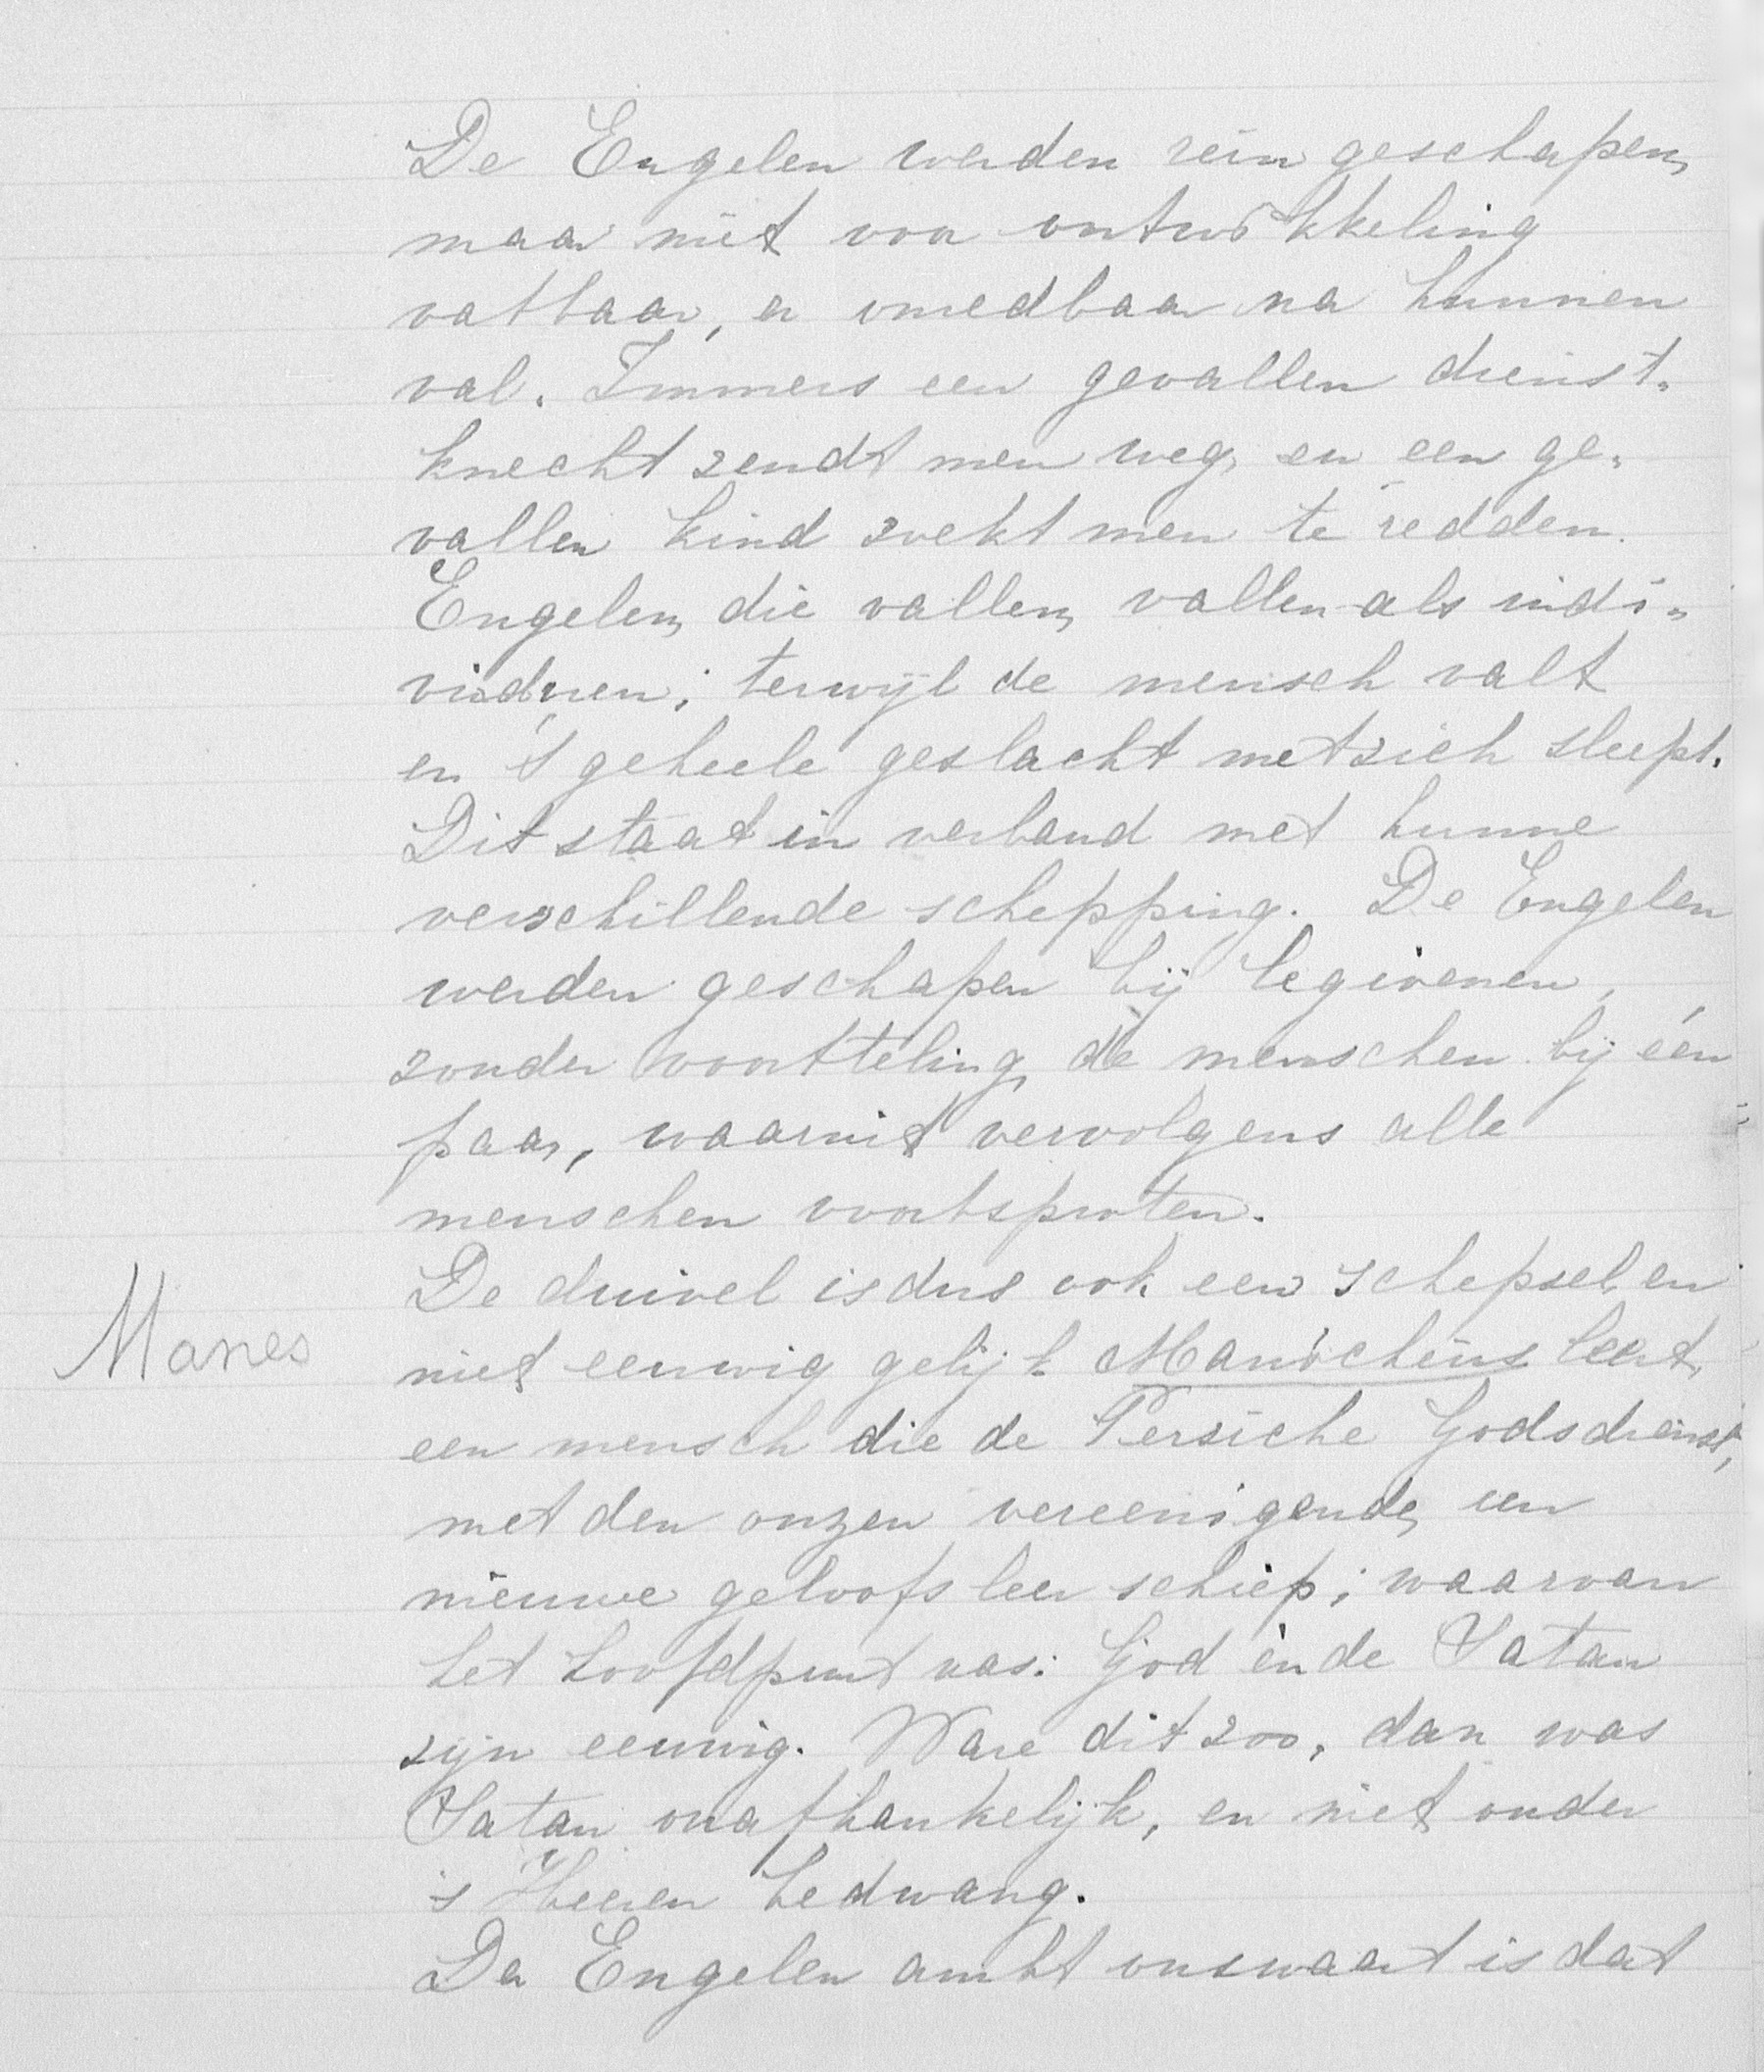 De Engelen werden rein geschapen,
maar niet voor ontwikkeling
vatbaar, en onredbaar na hunnen
val. Immers een gevallen dienst-
knecht zendt men weg, en een ge-
vallen kind zoekt men te redden.
Engelen, die vallen, vallen als indi-
viduen; terwijl de mensch valt
en 't geheele geslacht met zich sleept.
Dit staat in verband met hunne
verschillende schepping. De Engelen
werden geschapen bij legioenen,
zonder voortteling, de menschen bij één
paar, waaruit vervolgens alle
menschen voortsproten.
De duivel is dus ook een schepsel, en
Manes
niet eeuwig gelijk Manicheüs leert,
een mensch die de Persiche Godsdienst,
met den onzen vereenigende, een
nieuwe geloofsleer schiep; waarvan
het hoofdpunt was: God en de Satan
zijn eeuwig. Ware dit zoo, dan was
Satan onafhankelijk, en niet onder
's Heeren bedwang.
Der Engelen ambt onswaart is dat